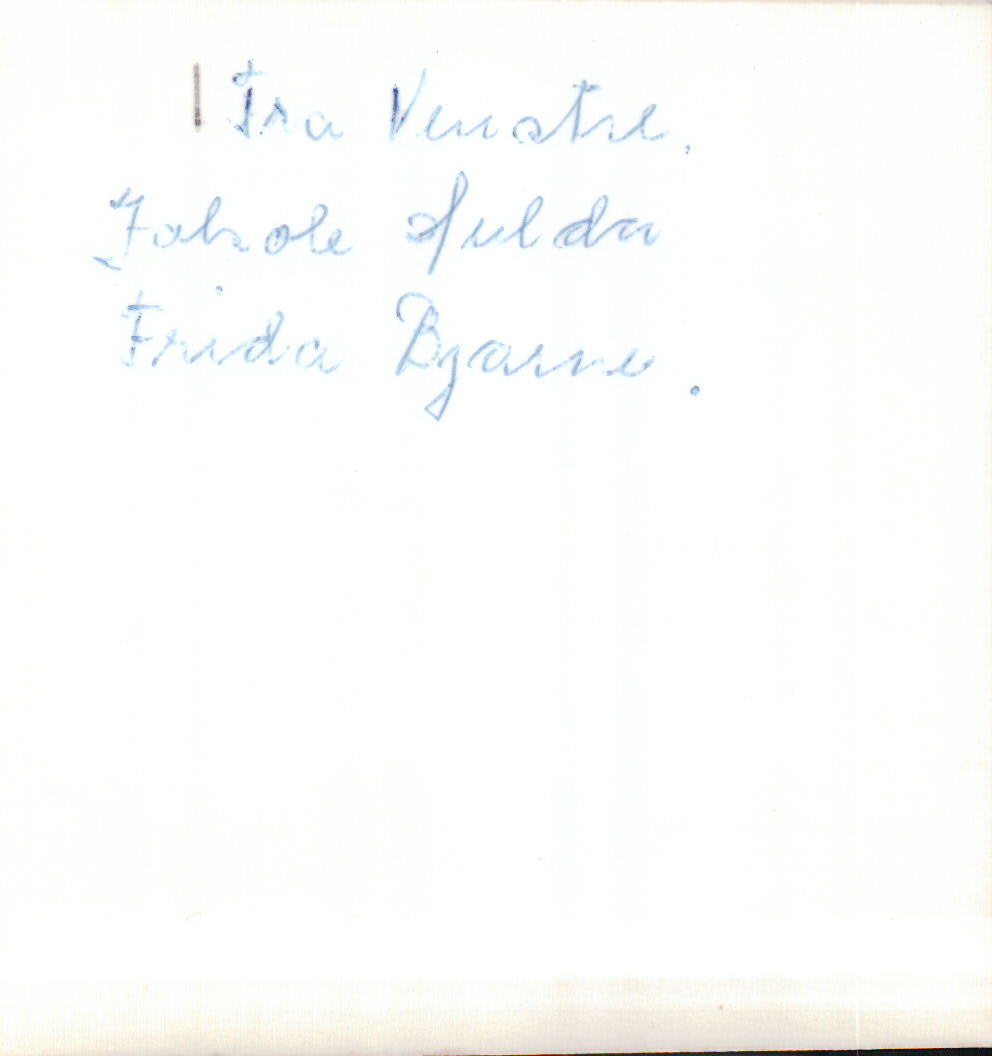 Fra Venstre.
Hulda
Frida Bjarne.